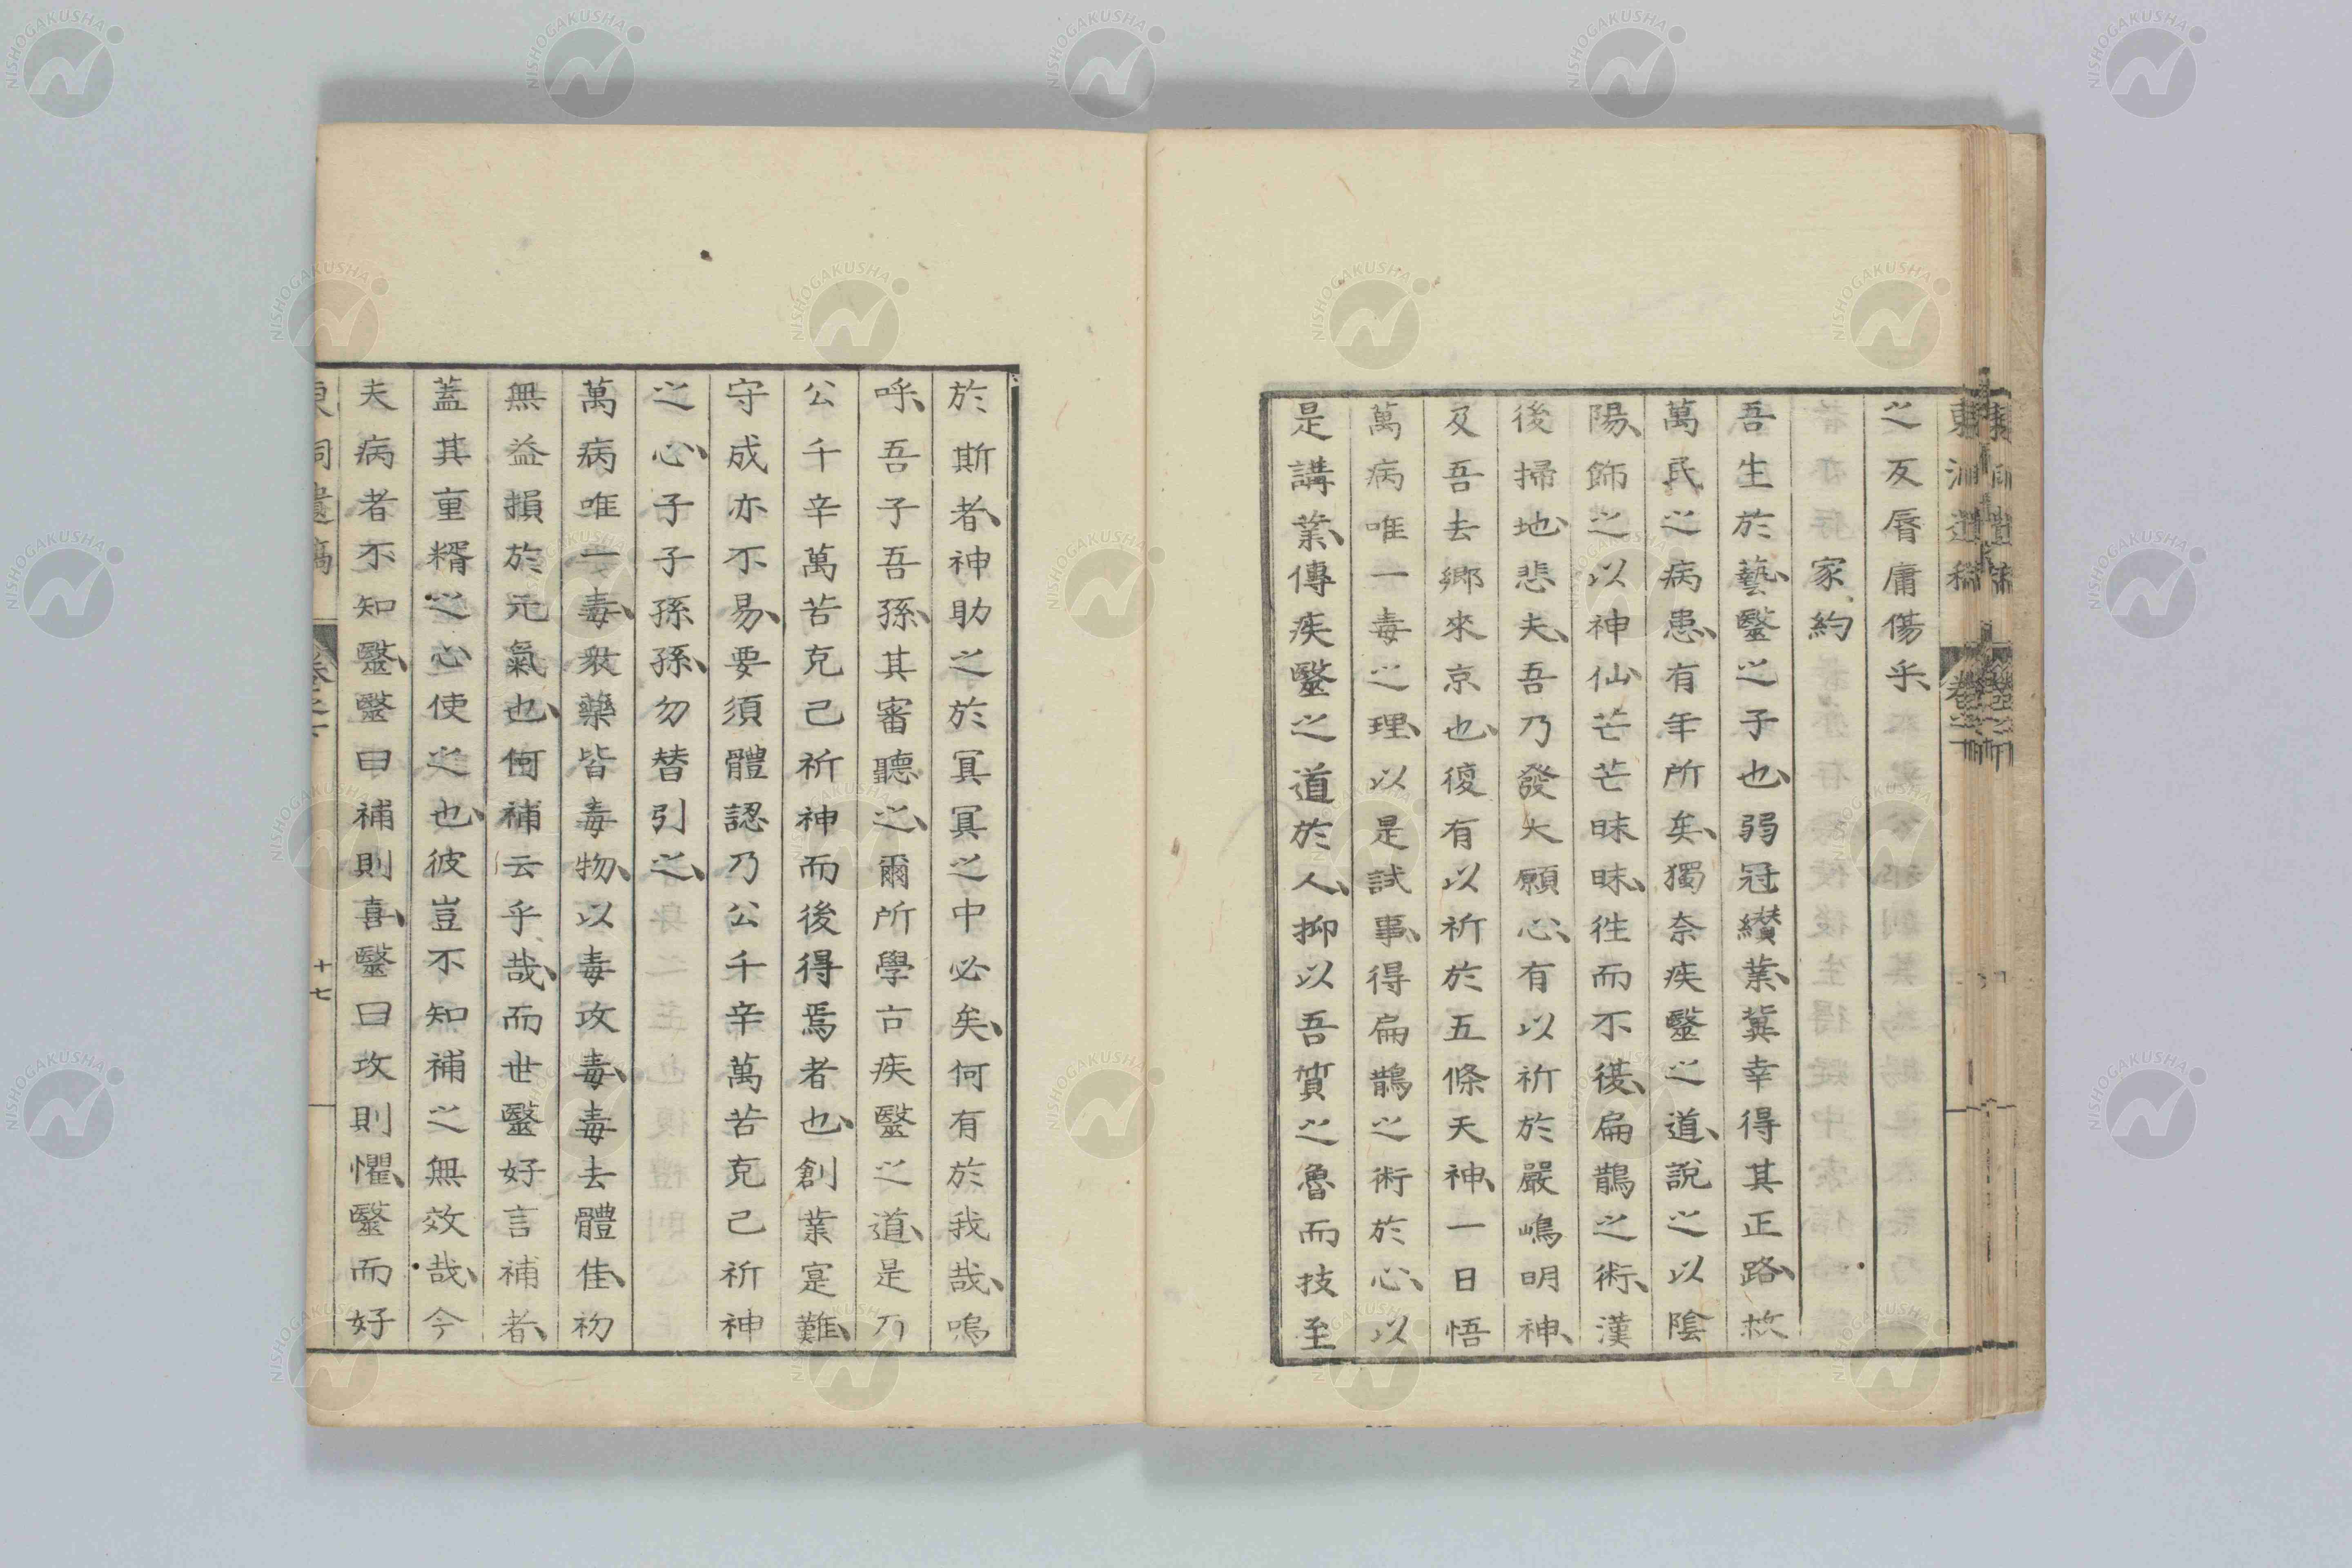 之反唇庸傷乎、
家約
吾生於藝、毉之子也、弱冠纉業、冀幸得其正路、救
萬民之病患、有年所矣、獨奈疾毉之道、說之以陰
陽、飾之以神仙、芒芒昧昧、徃而不復、扁鵲之術、漢
後掃地、悲夫、吾乃發大願心、有以祈於嚴嶋明神、
及吾去鄉來京也、復有以祈於五條天神、一日悟
萬病唯一毒之理、以是試事、得扁鵲之術於心、以
是講業、傳疾毉之道於人、抑以吾質之魯而技至
於斯者、神助之於冥冥之中必矣、何有於我哉、嗚
呼、吾子吾孫、其審聽之、爾所學古疾毉之道、是乃
公千辛萬苦克己祈神而後得焉者也、創業寔難、
守成亦不易、要須體認乃公千辛萬苦克己祈神
之心、子子孫孫、勿替引之、
萬病唯一毒、衆藥皆毒物、以毒攻毒、毒去體佳、初
無益損於元氣也、何補云乎哉、而世毉好言補者、
蓋其重糈之心使之也、彼豈不知補之無效哉、今
夫病者不知毉、毉曰補則喜、毉曰攻則懼、毉而好
東洞遺稿
卷之中
十七
NISHOGAKUSHA